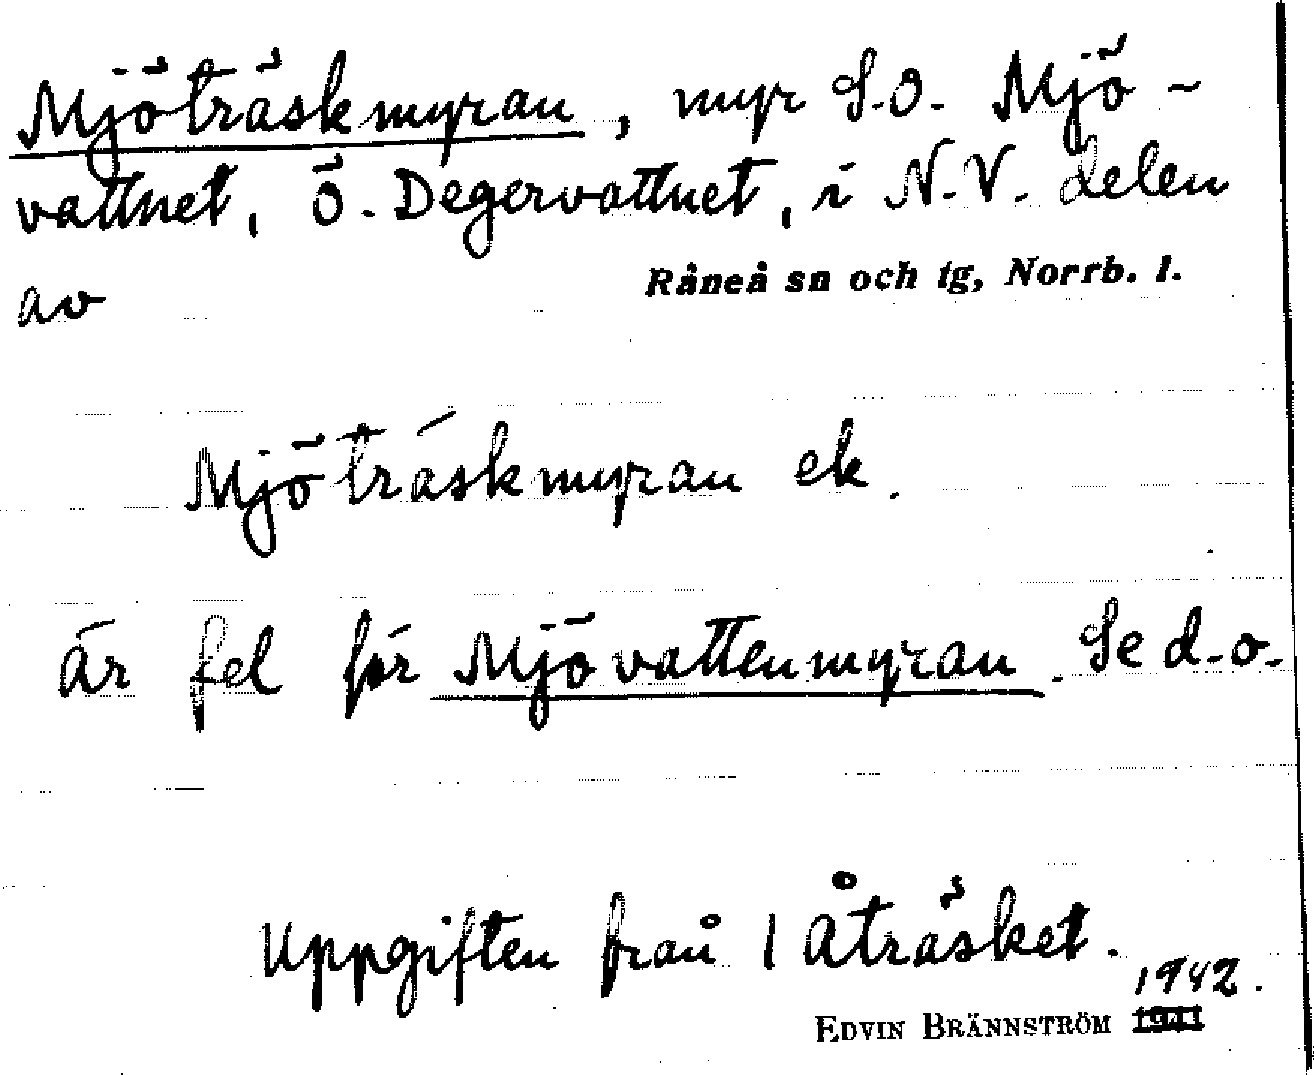 Mjöträskmyran, myr S.O. Mjö-
vattnet, Ö. Degervattnet, i N.V. delen
av Råneå sn och tg, Norrb. l.
Mjöträskmyran ek.
är fel för Mjövattenmyran. Se d.o.
Uppgiften från 1 Åträsket.
1942.
EDVIN BRÄNNSTRÖM 1941